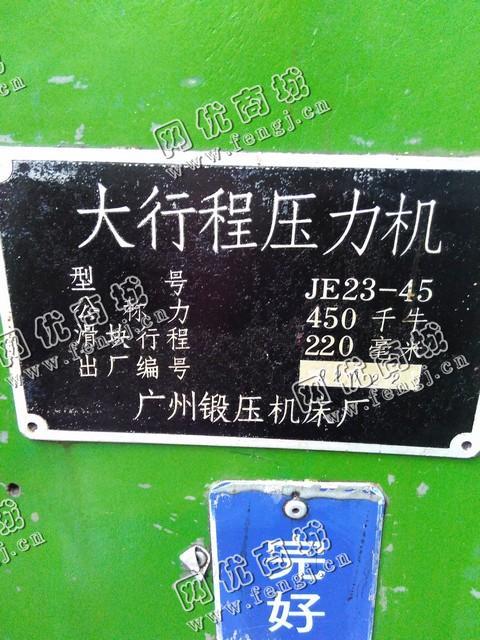 大行程压力机
型号 JE23-45
公称力 450 千牛
滑块行程 220 毫米
出厂编号
广州锻压机床厂
完好
网优商城
www.fengj.cn
网优商城
www.fengj.cn
网优商城
www.fengj.cn
网优商城
www.fengj.cn
网优商城
www.fengj.cn